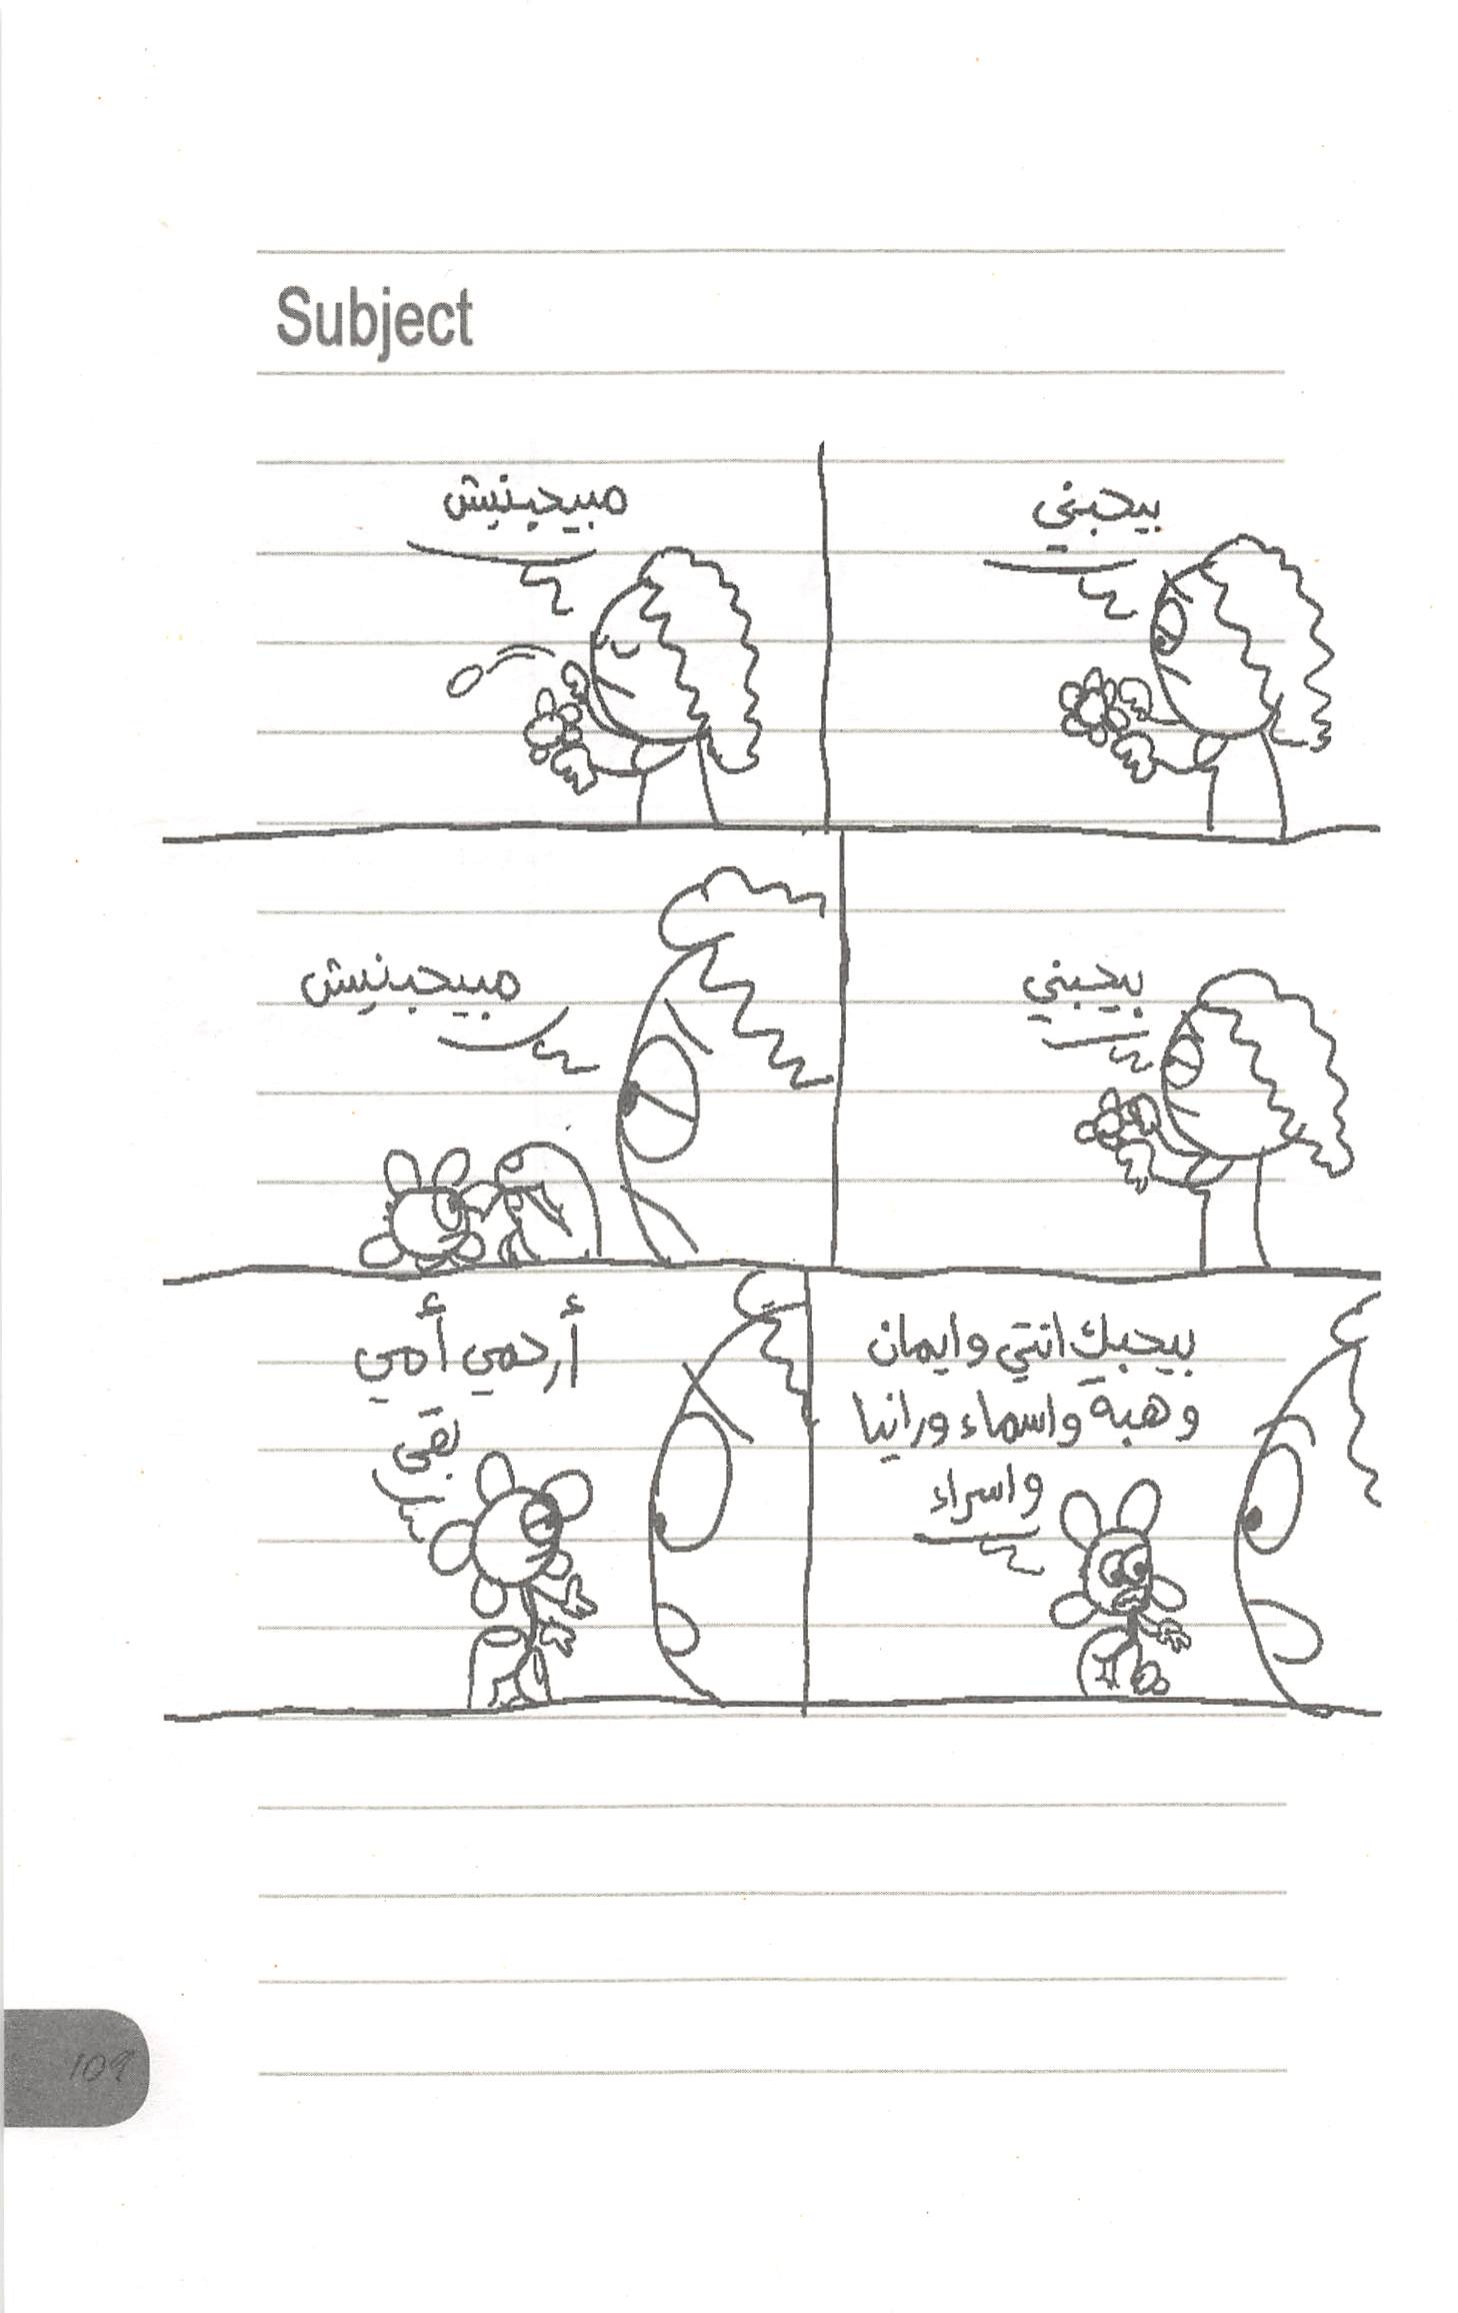 Subject
بيحبني
مبيحبنيش
بيحبني
مبيحبنيش
بيحبك انتي وايمان
وهبة واسماء ورانيا
واسراء
أرحمي أمي
بقى
109